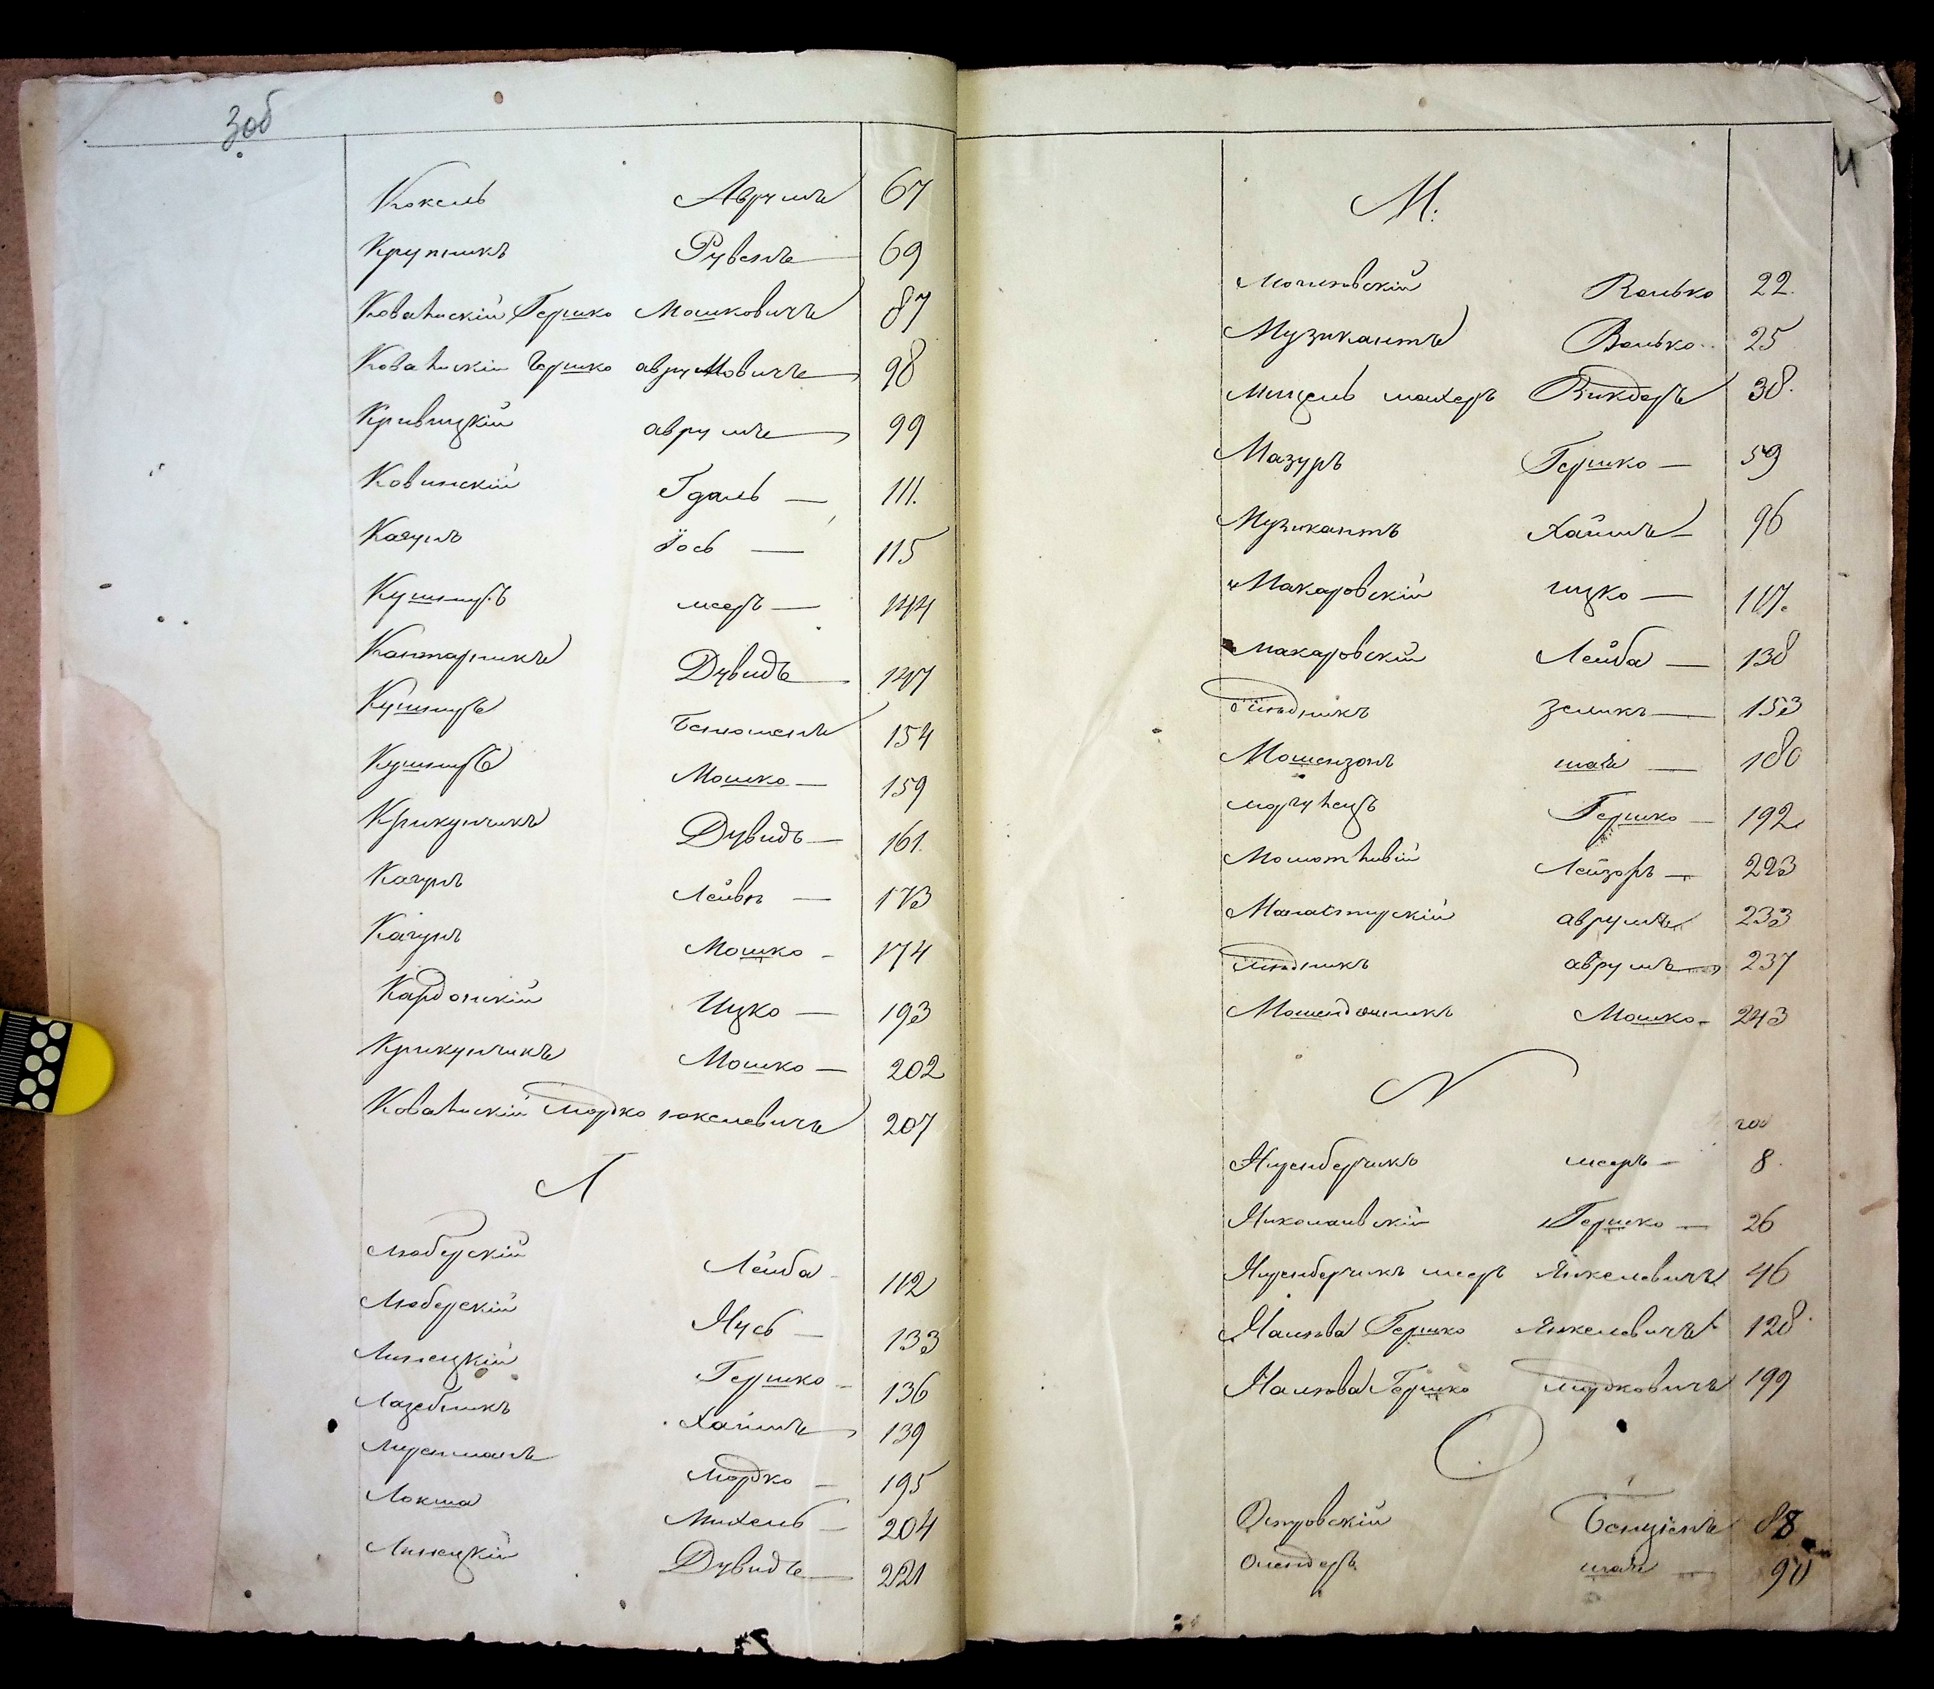 3об
Кокель Аврумъ 67
Крупникъ Рувенъ 69
Ковальскій Гершко Мошковичъ 87
Ковальскій Гершко аврумовичъ 98
Кривицкій аврумъ 99
Ковинскій Гдаль 111.
Кагунъ Іось 115
Кушниръ меэръ 144
Контарникъ Дувидъ 147
Кушниръ Бенюменъ 154
Кушниръ Мошко 159
Крикунчикъ Дувидъ 161.
Кагунъ Лейвы 173
Кагунъ Мошко 174
Кардонскій Ицко 193
Крикунчикъ Мошко 202
Ковальскій Мордко іокелевичъ 207
Л
Люберскій Лейба 112
Люберскій Нусь 133
Линецкій Гершко 136
Лазебникъ Хаимъ 139
Лиренманъ Мордко 195
Локша Михель 204
Линецкій Дувидъ 221
4
М:
Могилевскій Волько 22.
Музикантъ Волько 25
махеръ Викдоръ 38.
Мазуръ Гершко 59
Музикантъ Хаимъ 96
Макаровскій ицко 117.
Макаровскій Лейба 138
зеликъ 153
Мошензонъ шая 180
Гершко 192
Молотливій Лейзоръ 223
аврумъ 233
аврумъ 237
Мошко 243
N
8.
Николаивскій Гершко 26
Янкелевичъ 46
Гершко Янкелевичъ 128.
Гершко Мордковичъ 199
О
Островскій Бенціенъ 88
Олендеръ шая 90